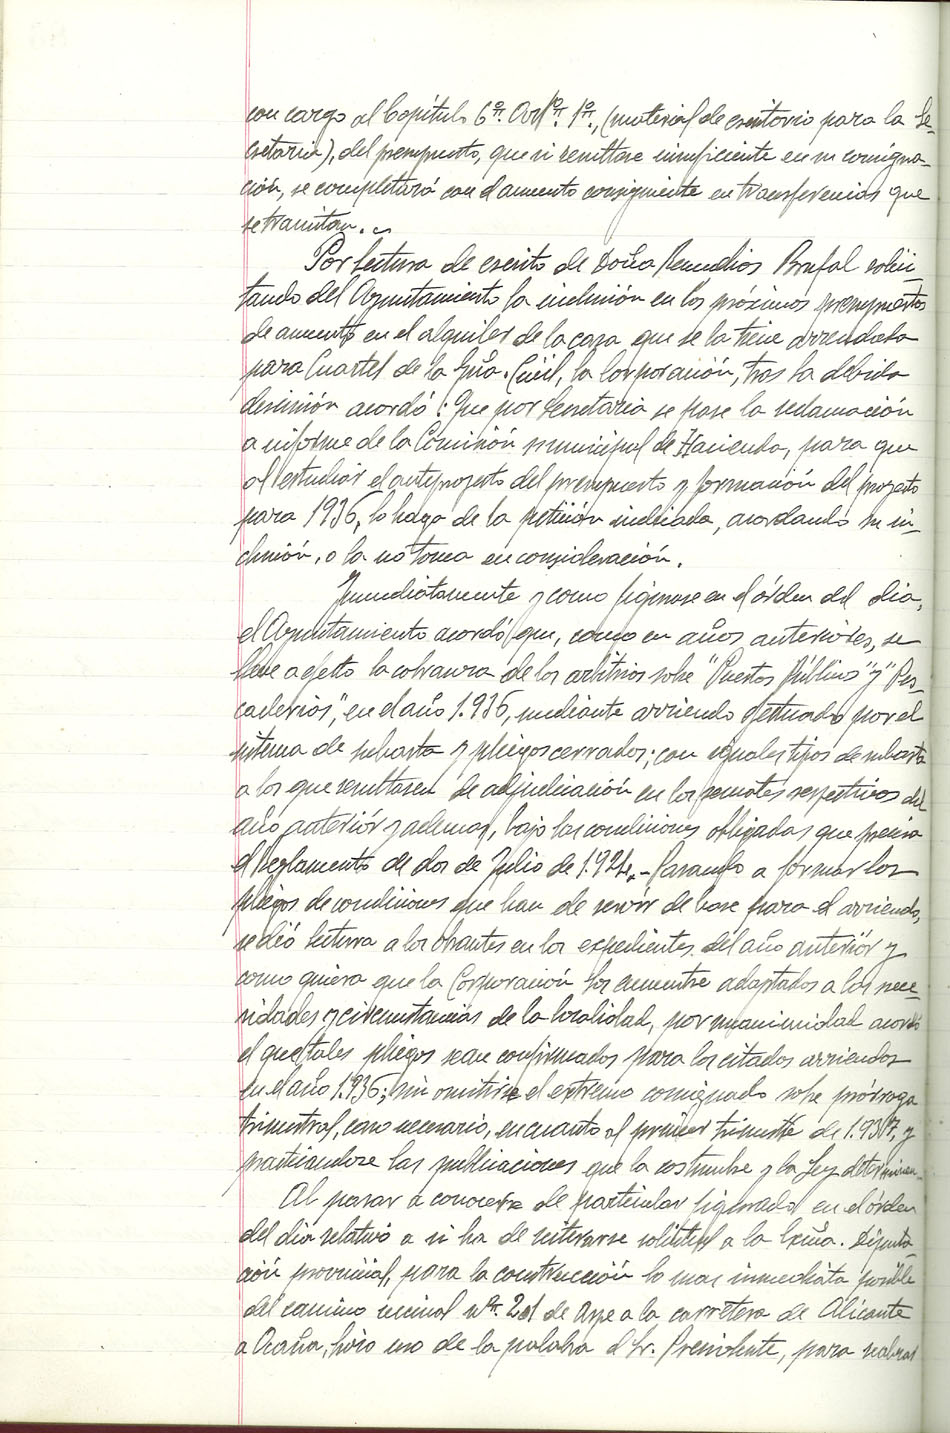 con cargo al Capítulo 6º. Artº. 1º., (material de escritorio para la Se-
cretaria), del presupuesto, que si resultase insuficiente en su consigna-
ción, se completará con el aumento consiguiente en transferencias que
se tramitan.
Por lectura de escrito de Doña Remedios Brufal solici-
tando del Ayuntamiento la inclusión en los próximos presupuestos
de aumento en el alquiler de la casa que se la tiene arrendada
para Cuartel de la Gua. Civil, la Corporación, tras la debida
discusión acordó: Que por Secretaria se pase la reclamación
a informe de la Comisión municipal de Hacienda, para que
al estudiar el anteproyecto del presupuesto y formación del proyecto
para 1936, lo haga de la petición indicada, acordando su in-
clusión, o la no toma en consideración.
Inmediatamente y como figurase en el órden del dia,
el Ayuntamiento acordó que, como en años anteriores, se
lleve a efecto la cobranza de los arbitrios sobre "Puestos Públicos" y "Pes-
caderias", en el año 1.936, mediante arriendo efectuado por el
sistema de subasta y pliegos cerrados; con iguales tipos de subasta
a los que resultasen de adjudicación en los remates respectivos del
año anteriór y ademas, bajo las condiciones obligadas que precisa
el Reglamento de dos de Julio de 1.924.- Pasando a formar los
pliegos de condiciones que han de servir de base para el arriendo,
se dió lectura a los obrantes en los expedientes del año anteriór y
como quiera que la Corporación los encuentre adaptados a las nece-
sidades y circunstancias de la localidad, por unanimidad acordó
el que tales pliegos sean confirmados para los citados arriendos
en el año 1.936; sin omitirse el extremo consignado sobre prórroga
trimestral, caso necesario, en cuanto al primer trimestre de 1.937, y
practicandose las publicaciones que la costumbre y la Ley determinan.
Al pasar a conocerse de particular figurado en el órden
del dia relativo a si ha de reiterarse solicitud a la Exma. Diputa-
ción provincial, para la construcción lo mas inmediata posible
del camino vecinal nº. 201 de Aspe a la carretera de Alicante
a Ocaña, hizo uso de la palabra el Sr. Presidente, para